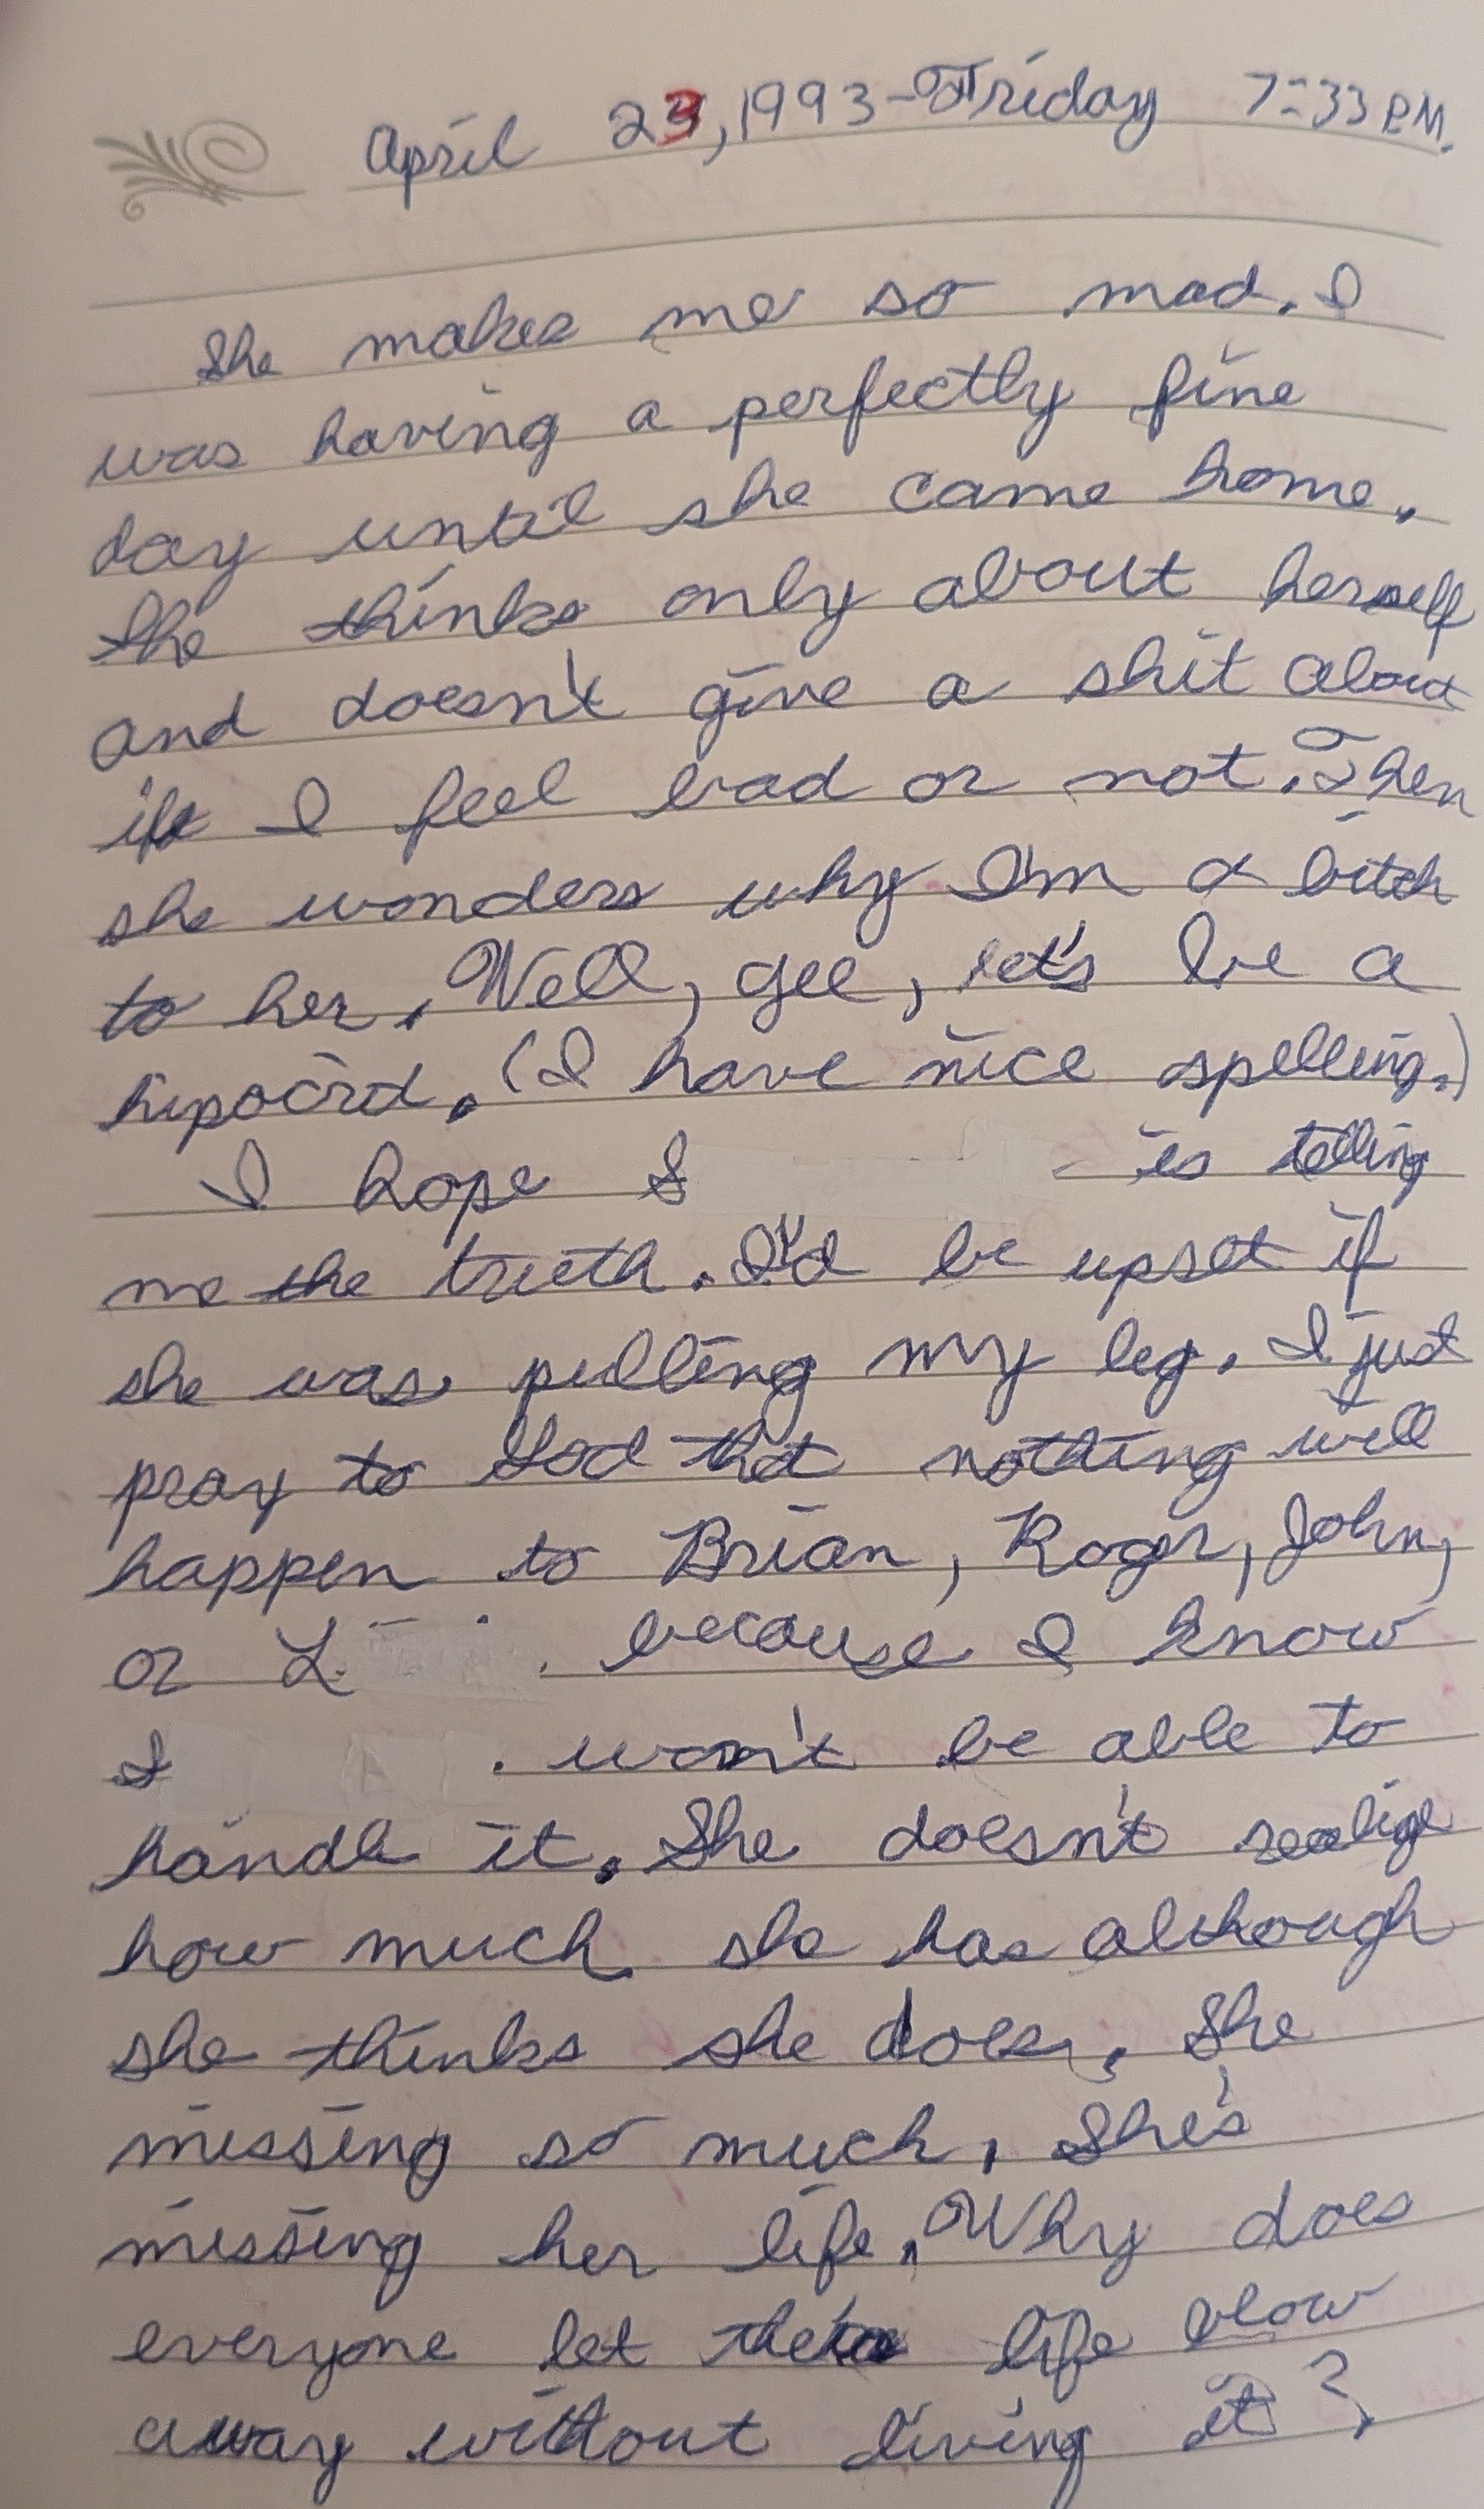 April 23, 1993-Friday 7:33 P.M.
She makes me so mad. I
was having a perfectly fine
day until she came home.
She thinks only about herself
and doesn't give a shit about
if I feel bad or not. Then
she wonders why I'm a bitch
to her. Well, gee, let's be a
hipocrid. (I have nice spelling.)
I hope S is telling
me the truth. I'd be upset if
she was pulling my leg. I just
pray to God that nothing will
happen to Brian, Roger, John,
or L. because I know
S won't be able to
handle it. She doesn't realize
how much she has although
she thinks she does. She
missing so much. She's
missing her life. Why does
everyone let their life blow
away without living it?